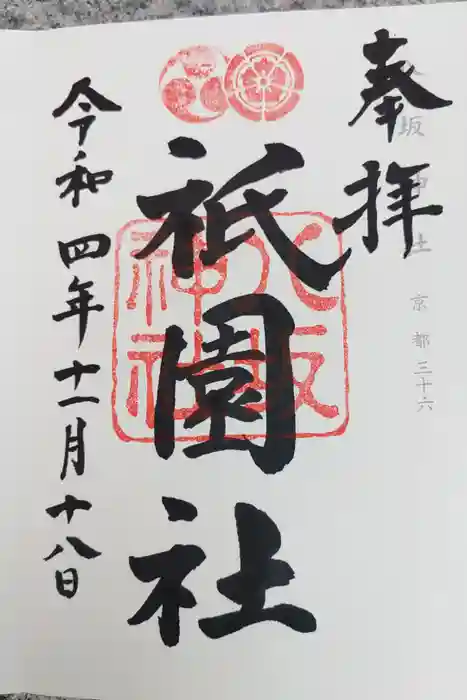 奉拝
八坂神社 京都三十六
祇園社
八坂神社
令和四年十一月十八日